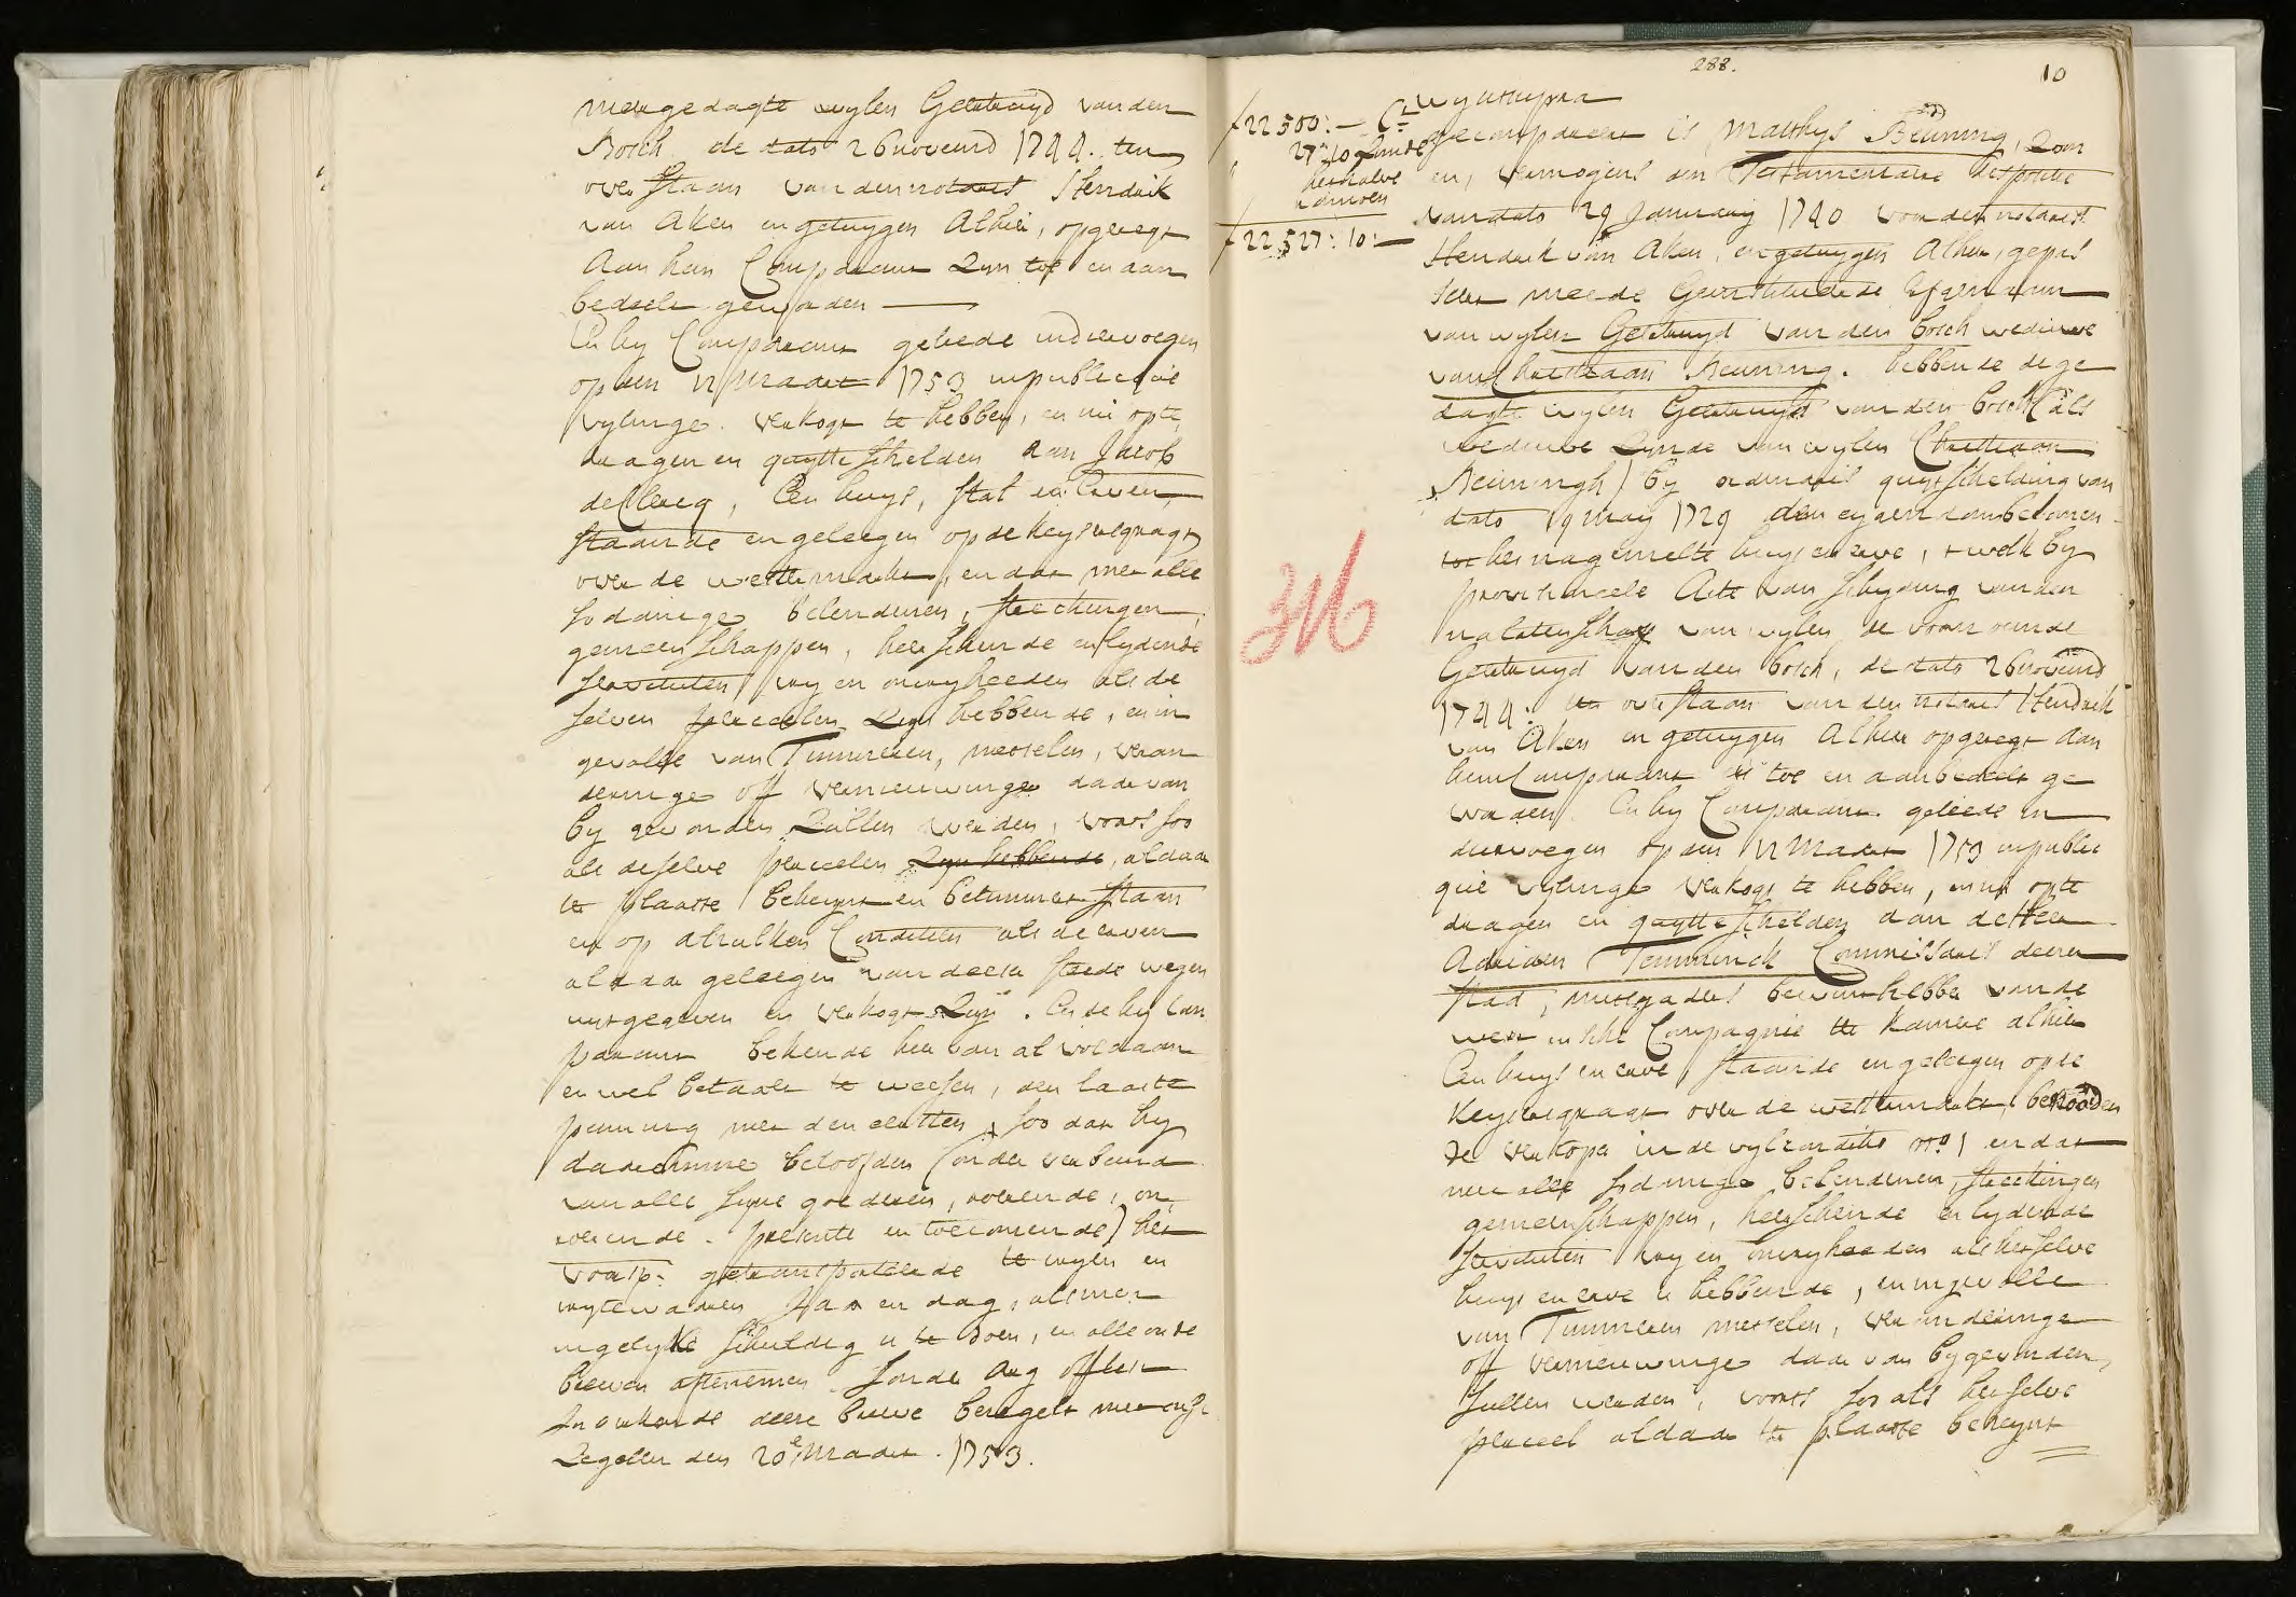 meergedagte wylen Geertruyd van den
Bosch de dato 26 novemb 1744. ten
overstaan van den notaris Hendrik
van Aken en getuygen Alhier, opgeregt
Aan hem Comparant Zyn toe en aan
bedeelt geworden
En hy Comparant geliede indiervoegen
op den 12 Maart 1753 in publicque
vylinge verkogt te hebben, en nu opte
draagen en quytteschelden aan Jacob
de Clercq, Een huys, stal en Erven
staande en geleegen op de Keysersgragt
over de westermarkt, en dat met alle
sodanige belenderen, streckingen,
gemeenschappen, heerschende en lydende
servituten vry en onvryheeden als de
selven perceelen Zyn hebbende, en in
gevalle van Timmeren, metselen, veran
deringe off vernieuwinge daar van
by gevonden Zullen werden, voorts soo
als deselve perceelen Zyn hebbende, aldaar
ter plaatse beheynt en betimmert staan
en op alsulken Conditien als de erven
aldaar geleegen van deeser steede wegen
uytgegeven en verkogt Zyn. Ende hy Com
parant bekende hier van al voldaan
en wel betaalt te weesen, den laaste
penning met den eersten, soo dat hy
daaromme beloofden (onder verband
van alle syne goederen, roerende, on
roerende. presente en toecomende) het
voorsp: getransporteerde te vryen en
vrytewaren Jaar en dag, alsmen
ingelyke schuldig is te doen, en alle oude
brieven afteneemen. Sonder Arg ofte list
In oirkonde deese brieve besegelt met onse
Zegelen den 20e Maart. 1753.
288.
10
f 22500:- Ct
27:10 Zynde
het halve
rantsoen
f 22527:10:-
Wy ut supra
gecompareert is Matthys Beuning, Zoon
en, vermogens den Testamentaire dispositie
van dato 29 January 1740 voor den notaris
Hendrik van Aken, en getuygen Alhier, gepas
seert meede Geinstitueerde Erfgenaam
van wylen Geertruyd van den bosch weduwe
van Christiaan Beuning. hebbende de ge
dagte wylen Geertruyd van den bosch (als
weduwe Zynde van wylen Christiaan
Beuningh) by ordinaris quytschelding van
dato 19 may 1729 den eygendom bekomen
tot het nagemelte huys en erve, 't welk by
provisioneele Acte van scheyding van den
nalatenschap van wylen de voornoemde
Geertruyd van den bosch, de dato 26 novemb
1744. ten overstaan van den notaris Hendrik
van Aken en getuygen Alhier opgeregt Aan
hem Comparant is toe en aanbedeelt ge
worden. En hy Comparant geliede in
diervoegen op den 12 Maart 1753 in public
que vylinge verkogt te hebben, en nu opte
dragen en quytteschelden aan de Heer
Adriaen Temminck Commissaris deeser
stad, mitsgaders bewinthebber van de
west indische Compagnie ter Kamere alhier
Een huys en erve staande en geleegen op de
Keysersgragt over de westermarkt
de verkoper in de vylconditie no. 1 en dat
met alle sodanige belenderen, streckingen
gemeenschappen, heerschende en lydende
servituten vry en onvryheeden als het selve
huys en erve is hebbende, en ingevalle
van Timmeren metselen, veranderinge
off vernieuwinge daar van bygevonden
sullen werden, voorts soo als het selve
perceel aldaar ter plaatse beheynt